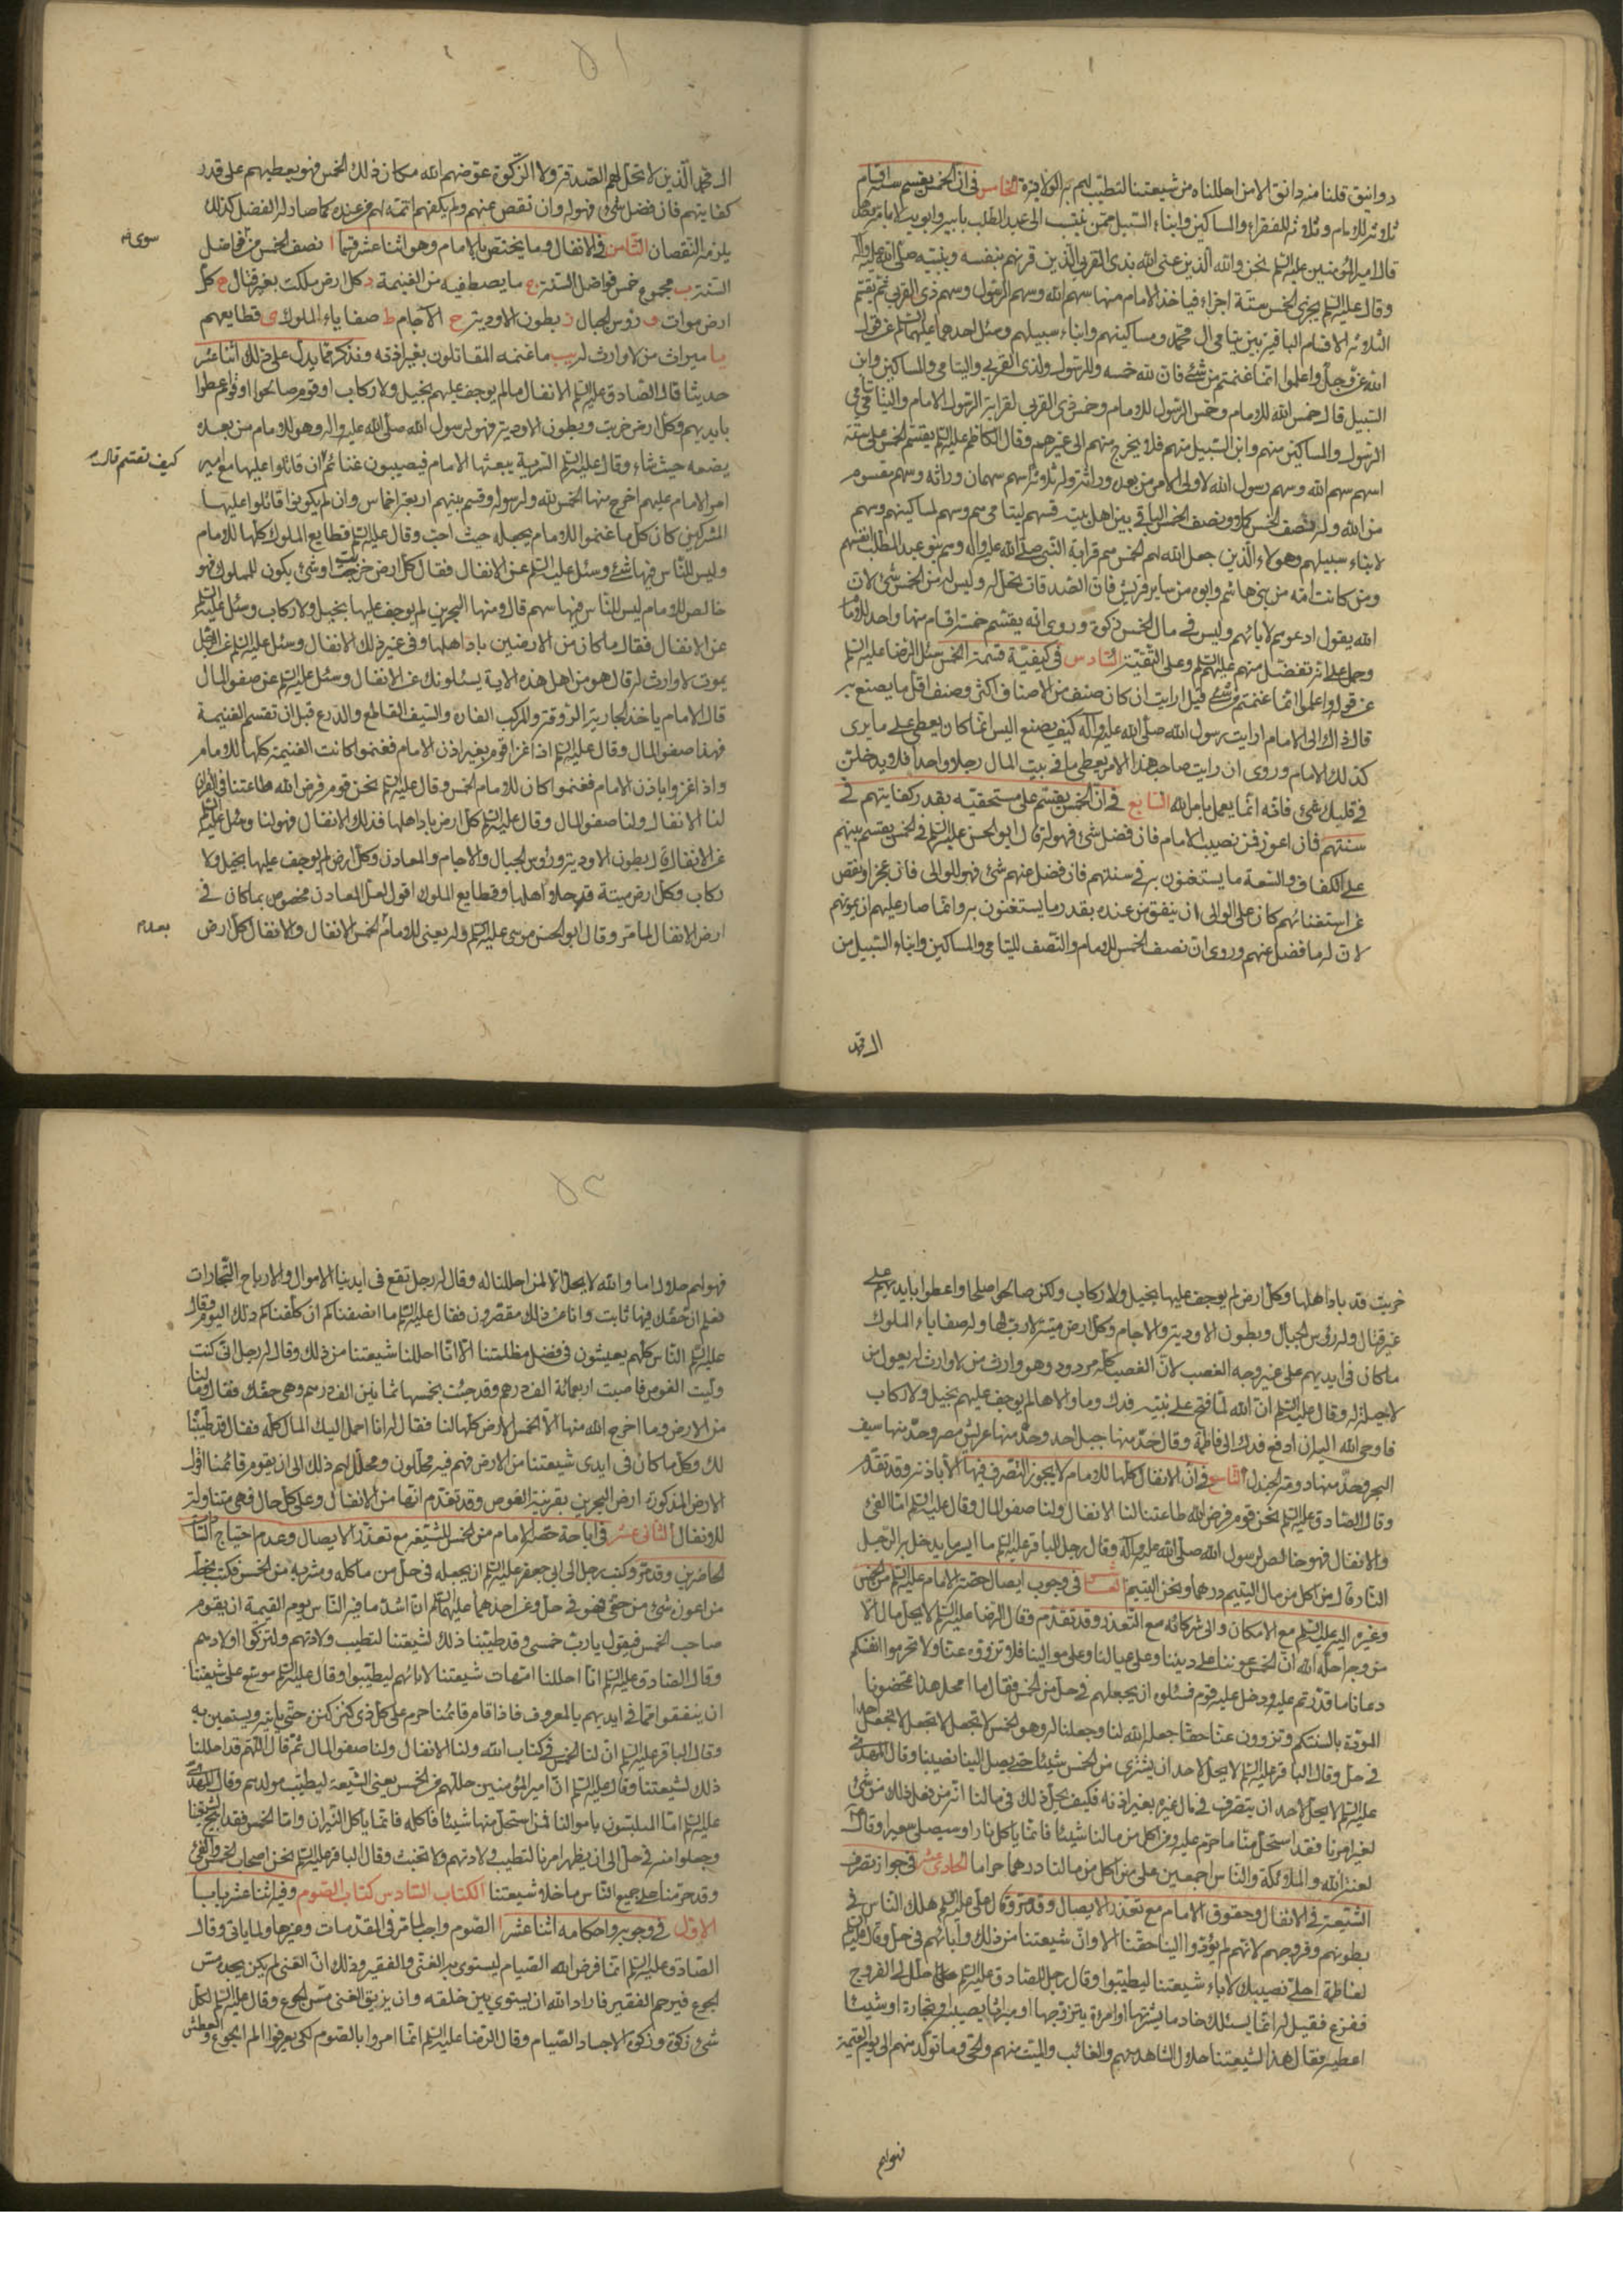 دوانيق قلنا منه دانق الا من احللناه من شيعتنا لتطيب لهم به الولادة الخامس في ان الخمس يقسم ستة اقسام
ثلاثة للامام وثلاثة للفقراء والمساكين وابناء السبيل ممن ينتسب الى عبد المطلب بابيه
قال امير المؤمنين عليه السلم نحن والله الذين عنى الله بذي القربى الذين قرنهم بنفسه وبنبيه صلى الله عليه وآله
وقال عليه السلم يجزى الخمس ستة اجزاء فياخذ الامام منها سهم الله وسهم الرسول وسهم ذي القربى ثم يقسم
الثلاثة الاقسام الباقية بين يتامى ال محمد ومساكينهم وابناء سبيلهم وسئل احدهما عليهما السلم عن قول
الله عز وجل واعلموا انما غنمتم من شئ فان لله خمسه وللرسول ولذي القربى واليتامى والمساكين وابن
السبيل قال خمس الله للامام وخمس الرسول للامام وخمس ذي القربى لقرابة الرسول الامام واليتامى يتامى
الرسول والمساكين منهم وابن السبيل منهم فلا يخرج منهم الى غيرهم وقال الكاظم عليه السلم يقسم الخمس على ستة
اسهم سهم الله وسهم رسول الله لاولي الامر من بعده وراثة وله ثلاثة اسهم سهمان وراثة وسهم مقسوم
من الله وله نصف الخمس كملا ونصف الخمس الباقي بين اهل بيته فسهم ليتاماهم وسهم لمساكينهم وسهم
لابناء سبيلهم وهؤلاء الذين جعل الله لهم الخمس هم قرابة النبي صلى الله عليه واله وهم بنو عبد المطلب انفسهم
ومن كانت امه من بني هاشم وابوه من ساير قريش فان الصدقات تحل له وليس له من الخمس شئ لان
الله يقول ادعوهم لابائهم وليس في مال الخمس زكوة وروى انه يقسم خمسة اقسام منها واحد للامام
وحمل على انه تفضل منهم عليهم السلم وعلى التقية السادس في كيفية قسمة الخمس سئل الرضا عليه السلم
عن قوله واعلموا انما غنمتم من شئ قيل ارايت ان كان صنف من الاصناف اكثر وصنف اقل ما يصنع به
قال ذاك الى الامام ارايت رسول الله صلى الله عليه وآله كيف يصنع اليس انما كان يعطى على ما يرى
كذلك الامام وروى ان رايت صاحب هذا الامر يعطى ما في بيت المال رجلا واحدا فلا يدخلن
في قلبك شئ فانه انما يعمل بامر الله السابع في ان الخمس يقسم على مستحقيه بقدر كفايتهم في
سنتهم فان اعوز فمن نصيب الامام فان فضل شئ فهو له قال ابو الحسن عليه السلم في الخمس يقسم بينهم
على الكفاف والسعة ما يستغنون به في سنتهم فان فضل عنهم شئ فهو للوالى فان عجز او نقص
عن استغنائهم كان على الوالى ان ينفق من عنده بقدر ما يستغنون به وانما صار عليه ان يمونهم
لان له ما فضل عنهم وروى ان نصف الخمس للامام والنصف لليتامى والمساكين وابناء السبيل من
ال محمد
ال محمد الذين لا تحل لهم الصدقة ولا الزكوة عوضهم الله مكان ذلك الخمس فهو يعطيهم على قدر
كفايتهم فان فضل شئ فهو له وان نقص عنهم ولم يكفهم اتمه لهم من عنده كما صار له الفضل كذلك
يلزمه النقصان الثامن في الانفال وما يختص بالامام وهو اثنا عشر قسما ا نصف الخمس من فواضل
سوى
السنة ب مجموع خمس فواضل السنة ج ما يصطفيه من الغنيمة د كل ارض ملكت بغير قتال ه كل
ارض موات و رؤس الجبال ز بطون الاودية ح الآجام ط صفايا الملوك ى قطايعهم
يا ميراث من لا وارث له يب ما غنمه المقاتلون بغير اذنه ونذكر مما يدل على ذلك اثنا عشر
حديثا قال الصادق عليه السلم الانفال ما لم يوجف عليهم بخيل ولا ركاب او قوم صالحوا او قوم اعطوا
بايديهم وكل ارض خربت وبطون الاودية فهو لرسول الله صلى الله عليه واله وهو للامام من بعده
يضعه حيث شاء وقال عليه السلم السرية يبعثها الامام فيصيبون غنائم ان قاتلوا عليها مع امير
كيف تقسم قال
امره الامام عليهم اخرج منها الخمس لله ولرسوله وقسم بينهم اربعة اخماس وان لم يكونوا قاتلوا عليها
المشركين كان كل ما غنموا للامام يجعله حيث احب وقال عليه السلم قطايع الملوك كلها للامام
وليس للناس فيها شئ وسئل عليه السلم عن الانفال فقال كل ارض خربت او شئ يكون للملوك فهو
خالص للامام ليس للناس فيها سهم قال ومنها البحرين لم يوجف عليها بخيل ولا ركاب وسئل عليه السلم
عن الانفال فقال ما كان من الارضين باد اهلها وفي غير ذلك الانفال وسئل عليه السلم عن الرجل
يموت لا وارث له قال هو من اهل هذه الاية يسئلونك عن الانفال وسئل عليه السلم عن صفو المال
قال الامام ياخذ الجارية الروقة والمركب الفاره والسيف القاطع والدرع قبل ان تقسم الغنيمة
فهذا صفو المال وقال عليه السلم اذا غزا قوم بغير اذن الامام فغنموا كانت الغنيمة كلها للامام
واذا غزوا باذن الامام فغنموا كان للامام الخمس وقال عليه السلم نحن قوم فرض الله طاعتنا في القرآن
لنا الانفال ولنا صفو المال وقال عليه السلم كل ارض باد اهلها فذلك الانفال فهو لنا وسئل عليه السلم
عن الانفال قال بطون الاودية ورؤس الجبال والاجام والمعادن وكل ارض لم يوجف عليها بخيل ولا
ركاب وكل ارض ميتة قد جلا اهلها وقطايع الملوك اقول لعل المعادن مخصوص بما كان في
ارض الانفال لما مر وقال ابو الحسن موسى عليه السلم وله يعنى للامام الخمس الانفال والانفال كل ارض
خربت قد باد اهلها وكل ارض لم يوجف عليها بخيل ولا ركاب ولكن صالحوا صلحا واعطوا بايديهم على
غير قتال وله رؤس الجبال وبطون الاودية والاجام وكل ارض ميتة لا رب لها وله صفايا الملوك
ما كان في ايديهم على غير وجه الغصب لان الغصب كله مردود وهو وارث من لا وارث له يعول من
لا حيلة له وقال عليه السلم ان الله لما فتح على نبيه فدك وما والاها لم يوجف عليهم بخيل ولا ركاب
فاوحى الله اليه ان ادفع فدك الى فاطمة وقال حد منها جبل احد وحد منها عريش مصر وحد منها سيف
البحر وحد منها دومة الجندل التاسع في ان الانفال كلها للامام لا يجوز التصرف فيها الا باذنه وقد تقدم
وقال الصادق عليه السلم نحن قوم فرض الله طاعتنا لنا الانفال ولنا صفو المال وقال عليه السلم اما الفئ
والانفال فهو خالص لرسول الله صلى الله عليه وآله وقال رجل للباقر عليه السلم ما ايسر ما يدخل به الرجل
النار قال من اكل من مال اليتيم درهما ونحن اليتيم العاشر في وجوب ايصال حصة الامام عليه السلم من الخمس
وغيره اليه عليه السلم مع الامكان والى شركائه مع التعذر وقد تقدم فقال الرضا عليه السلم لا يحل مال الا
من وجه احله الله ان الخمس عوننا على ديننا وعلى عيالنا وعلى موالينا فلا تزووه عنا ولا تحرموا انفسكم
دعانا ما قدرتم عليه ودخل عليه قوم فسئلوه ان يجعلهم في حل من الخمس فقال ما امحل هذا تمحضونا
المودة بالسنتكم وتزوون عنا حقا جعله الله لنا وجعلنا له وهو الخمس لا نجعل لا نجعل لا نجعل احدا
في حل وقال الباقر عليه السلم لا يحل لاحد ان يشترى من الخمس شيئا حتى يصل الينا نصيبنا وقال المهدي
عليه السلم لا يحل لاحد ان يتصرف في مال غيره بغير اذنه فكيف يحل ذلك في مالنا انه من فعل ذلك من شئ
لغير امرنا فقد استحل منا ما حرم عليه ومن اكل من مالنا شيئا فانما ياكل نارا وسيصلى سعيرا وقال
لعنة الله والملائكة والناس اجمعين على من اكل من مالنا درهما حراما الحادى عشر في جواز تصرف
الشيعة في الانفال وحقوق الامام مع تعذر الايصال وقد مر وقال على عليه السلم هلك الناس في
بطونهم وفروجهم لانهم لم يؤدوا الينا حقنا الا وان شيعتنا من ذلك وآبائهم في حل وقال عليه السلم
لفاطمة احلى نصيبك لاباء شيعتنا ليطيبوا وقال رجل للصادق عليه السلم حلل لى الفروج
ففزع فقيل له انما يسئلك خادما يشتريها او امرءة يتزوجها او ميراثا يصيبه او تجارة او شيئا
اعطيه فقال هذا لشيعتنا حلال الشاهد منهم والغائب والميت منهم والحى وما تولد منهم الى يوم القيمة
فهو لهم
فهو لهم حلال اما والله لا يحل الا لمن احللنا له وقال له رجل تقع في ايدينا الاموال والارباح والتجارات
نعلم ان حقك فيها ثابت وانا عن ذلك مقصرون فقال عليه السلم ما انصفناكم ان كلفناكم ذلك اليوم وقال
عليه السلم الناس كلهم يعيشون في فضل مظلمتنا الا انا احللنا شيعتنا من ذلك وقال له رجل انى كنت
وليت الغوص فاصبت اربعمائة الف درهم وقد جئت بخمسها ثمانين الف درهم وهى حقك فقال وما لنا
من الارض وما اخرج الله منها الا الخمس الارض كلها لنا فقال له انا احمل اليك المال كله فقال قد طيبنا
لك وكل ما كان في ايدى شيعتنا من الارض فهم فيه محللون ومحلل لهم ذلك الى ان يقوم قائمنا اقول
الارض المذكورة ارض البحرين بقرينة الغوص وقد تقدم انها من الانفال وعلى كل حال فهى متناولة
للانفال الثانى عشر في اباحة حصة الامام من الخمس للشيعة مع تعذر الايصال وعدم احتياج السادات
لحاضرين وقد مر وكتب رجل الى ابى جعفر عليه السلم ان يجعله في حل من ماكله ومشربه من الخمس فكتب بخطه
من اعوزه شئ من حقى فهو في حل وعن احدهما عليهما السلم ان اشد ما فيه الناس يوم القيمة ان يقوم
صاحب الخمس فيقول يارب خمسى وقد طيبنا ذلك لشيعتنا لتطيب ولادتهم ولتزكوا اولادهم
وقال الصادق عليه السلم انا احللنا امهات شيعتنا لابائهم ليطيبوا وقال عليه السلم موسع على شيعتنا
ان ينفقوا مما في ايديهم بالمعروف فاذا قام قائمنا حرم على كل ذى كنز كنزه حتى ياتيه ويستعين به
وقال الباقر عليه السلم ان لنا الخمس في كتاب الله ولنا الانفال ولنا صفو المال ثم قال اللهم قد احللنا
ذلك لشيعتنا وقال عليه السلم ان امير المؤمنين حللهم من الخمس يعنى الشيعة ليطيب مولدهم وقال المهدي
عليه السلم اما المتلبسون باموالنا فمن استحل منها شيئا فاكله فانما ياكل النيران واما الخمس فقد ابيح لشيعتنا
وجعلوا منه في حل الى ان يظهر امرنا لتطيب ولادتهم ولا تخبث وقال الباقر عليه السلم نحن اصحاب الخمس والفئ
وقد حرمنا على جميع الناس ما خلا شيعتنا الكتاب السادس كتاب الصوم وفيه اثنا عشر بابا
الاول في وجوبه واحكامه اثنا عشر ا الصوم واجب لما مر في المقدمات وغيرها ولما ياتى وقال
الصادق عليه السلم انما فرض الله الصيام ليستوى به الغنى والفقير وذلك ان الغنى لم يكن يجد مس
لجوع فيرحم الفقير فاراد الله ان يستوى بين خلقه وان يذيق الغنى مس الجوع وقال عليه السلم لكل
شئ زكوة وزكوة الاجساد الصيام وقال الرضا عليه السلم انما امروا بالصوم لكى يعرفوا الم الجوع والعطش